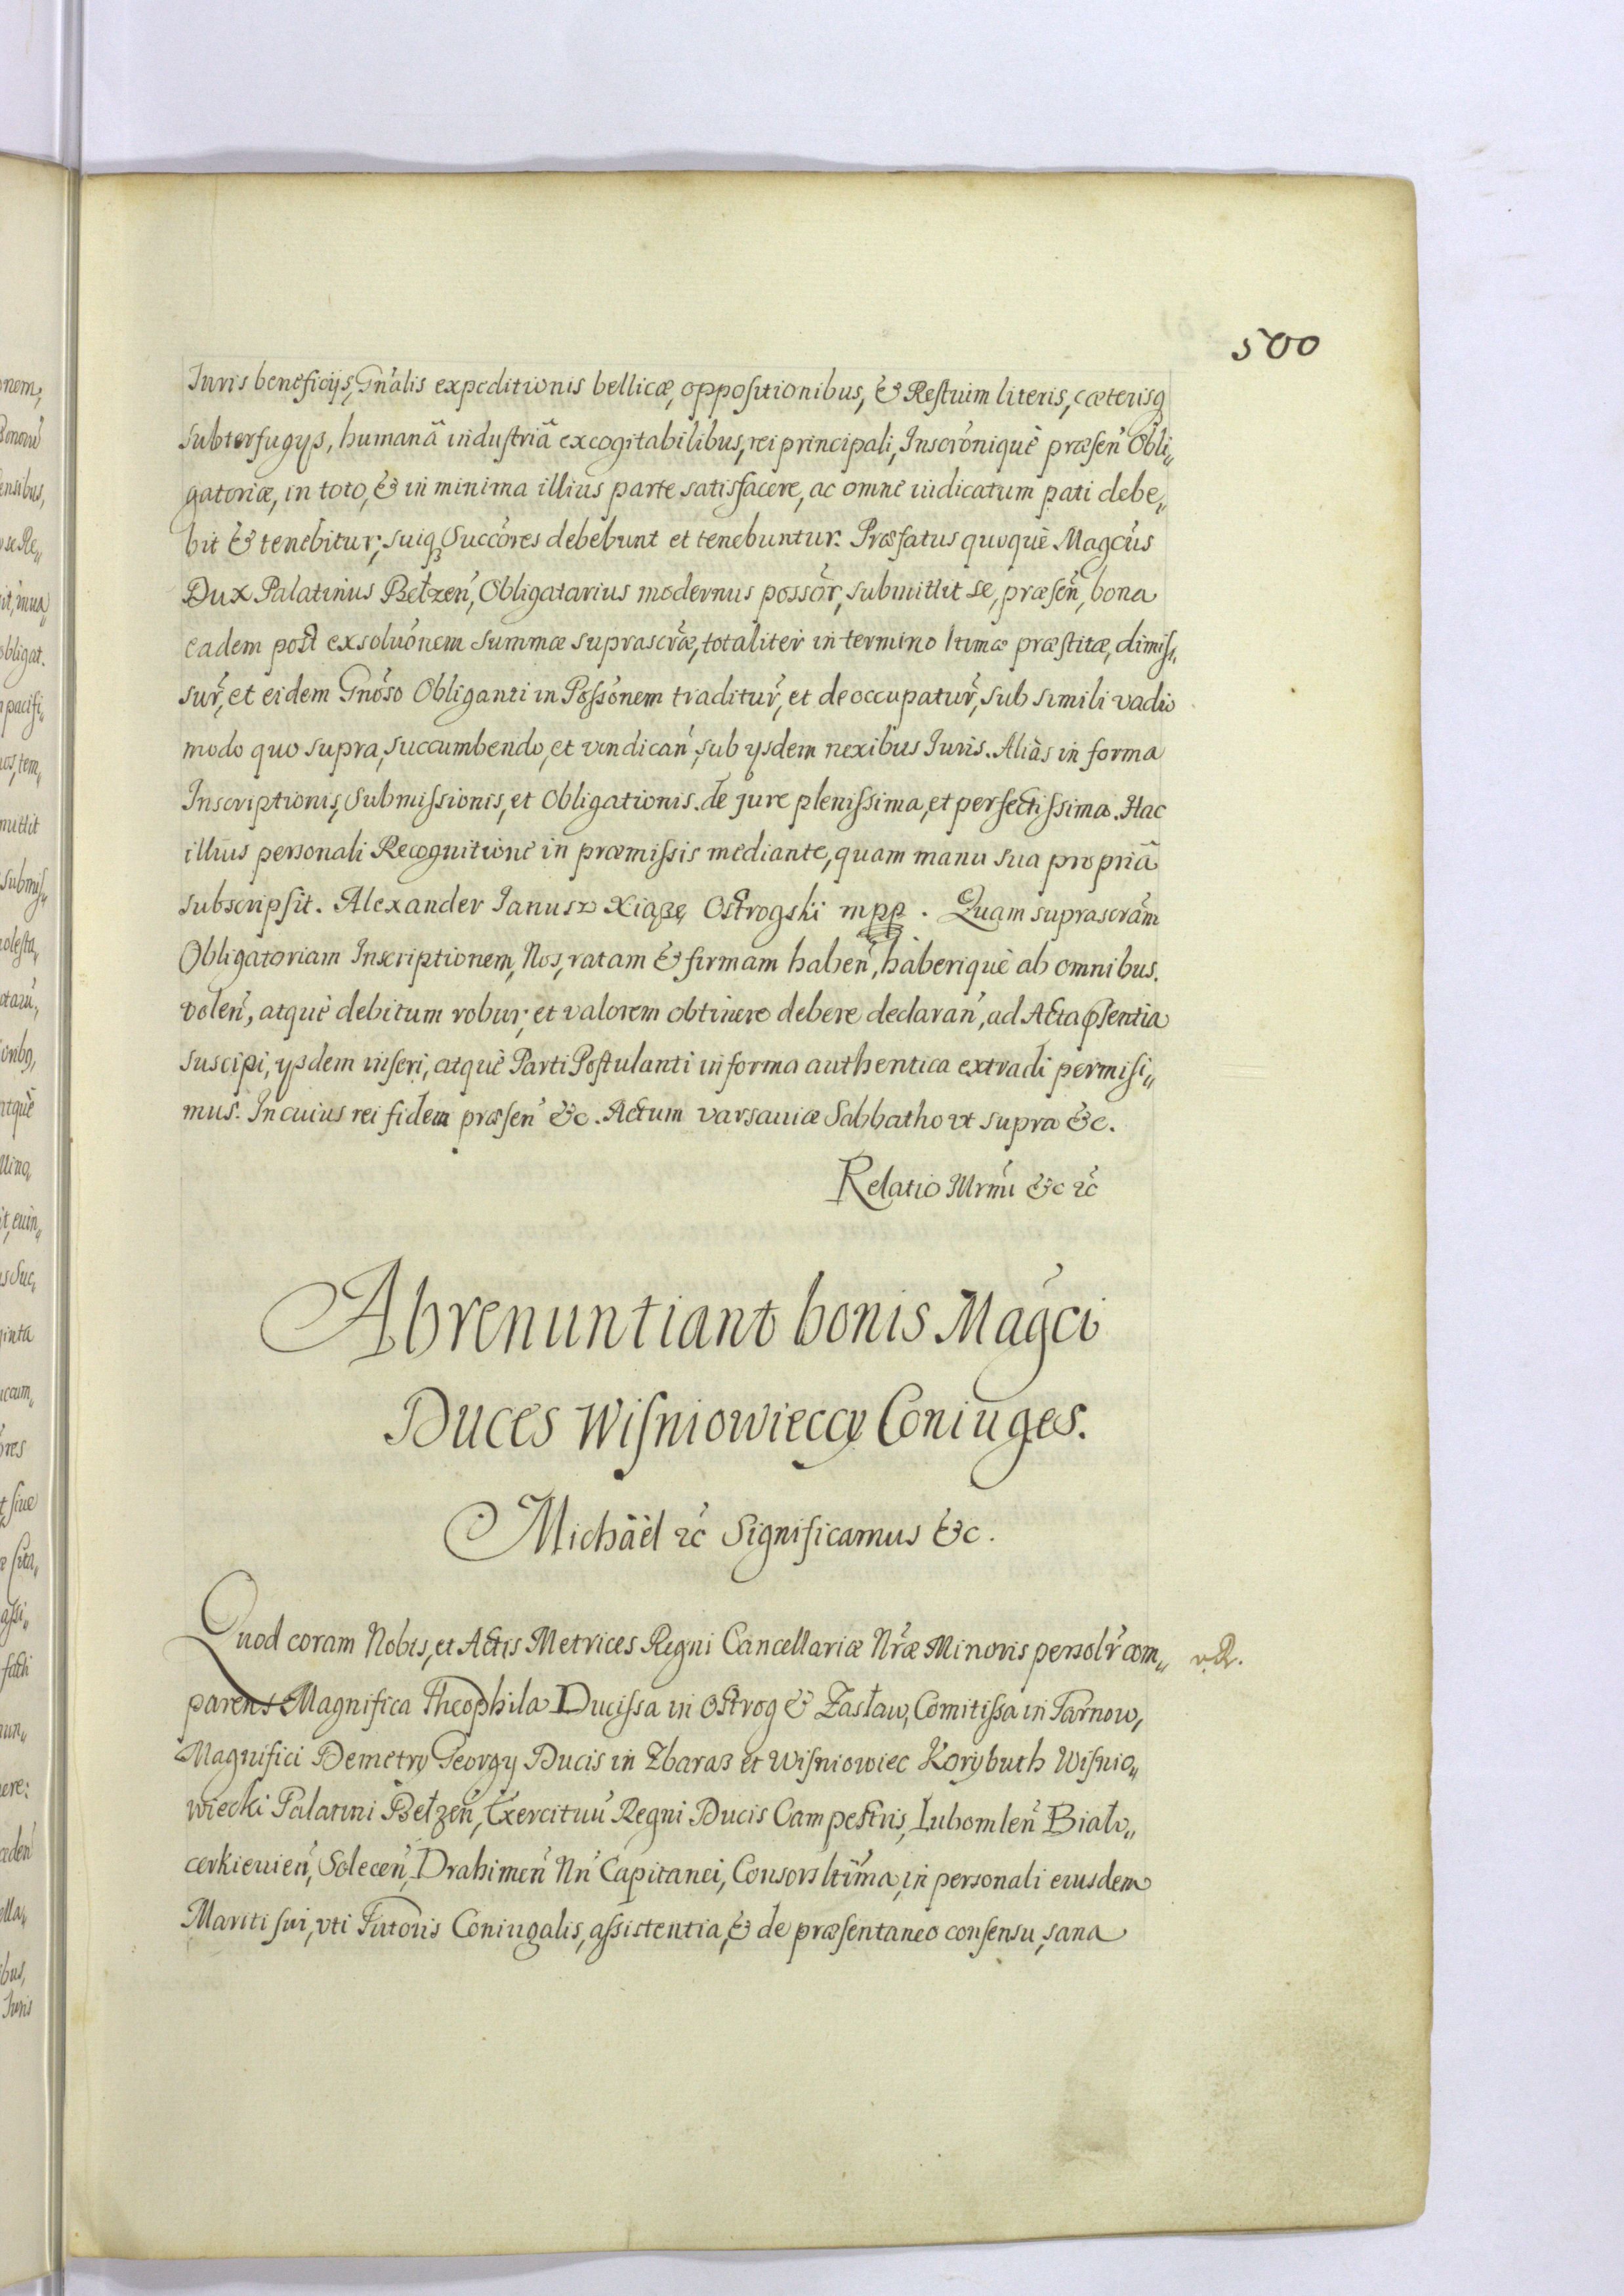 500
Iuris beneficijs, Gn̄alis expeditionis bellicæ, oppositionibus, & Restium literis, cæterisq
subterfugys, humanâ industriâ excogitabilibus, rei principali, Inscrōniquè præsen̄ Obli„
gatoriæ, in toto, & in minima illius parte satisfacere, ac omne iudicatum pati debe„
bit & tenebitur, suiq Succōres debebunt et tenebuntur. Præfatus quoquè Magc̄us
Dux Palatinus Bełzen̄, Obligatarius modernus possōr, submittit se, præsen̄, bona
eadem post exsoluōnem summæ suprascr̄æ, totaliter in termino ltimæ præstitæ, dimis„
sur̄, et eidem Gnōso Obliganti in Possōnem traditur̄, et deoccupatur̄, sub simili vadio
modo quo supra, succumbendo, et vendican̄, sub ysdem nexibus Iuris. Aliàs in forma
Inscriptionis, Submissionis, et Obligationis. de jure plenissima, et perfectissima. Hac
illius personali Recognitione in præmissis mediante, quam manu sua propriâ
subscripsit. Alexander Ianusz Xiąże Ostrogski mpp. Quam suprascrām
Obligatoriam Inscriptionem, Nos, ratam & firmam haben̄, haberiquè ab omnibus.
volen̄, atquè debitum robur, et valorem obtinere debere declaran̄, ad Acta pſentia
suscipi, ysdem inseri, atquè Parti Postulanti in forma authentica extradi permisi„
mus. In cuius rei fidem præsen̄ &c. Actum varsauiæ Sabbatho vt supra &c.
Relatio Illrmi &c ꝛc̄
Abrenuntiant bonis Magc̄i
Duces Wisniowieccy Coniuges.
Michäel ꝛc̄ Significamus &c.
Quod coram Nobis, et Actis Metrices Regni Cancellariæ Nr̄æ Minoris persolr̄ com„
parens Magnifica Theophila Ducissa in Ostrog & Zasław, Comitissa in Tarnow,
Magnifici Demetry Georgy Ducis in Zbaraż et Wisniowiec Korybuth Wisnio„
wiecki Palatini Bełzen̄, Exercituū Regni Ducis Campestris, Lubomlen̄ Biało„
cerkieuien̄, Solecen̄, Drahimen̄ Nn̄ Capitanei, Consors ltīma, in personali eiusdem
Mariti sui, vti Tutoris Coniugalis, assistentia, & de præsentaneo consensu, sana